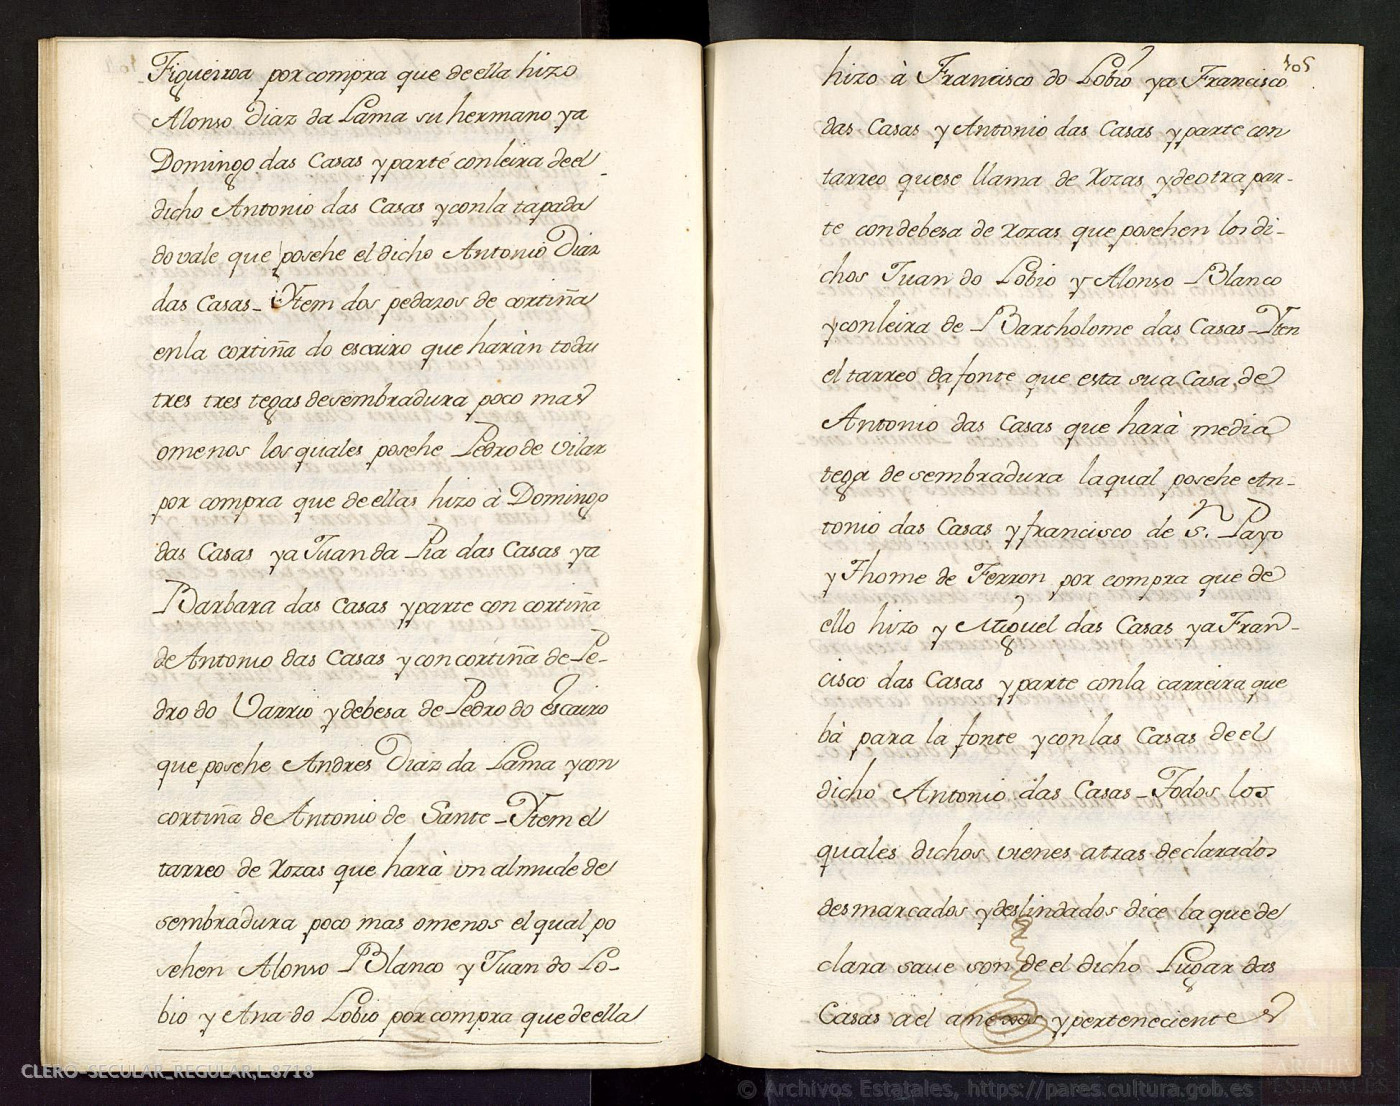 Figueiroa por compra que de ella hizo
Alonso Diaz da Lama su hermano ya
Domingo das Casas y parte con leira de el
dicho Antonio das Casas y con la tapada
do vale que posehe el dicho Antonio Diaz
das Casas - Ytem dos pedazos de cortiña
en la cortiña do escairo que haràn todas
tres tres tegas de sembradura poco mas
o menos los quales posehe Pedro de Vilar
por compra que de ellas hizo à Domingo
das Casas ya Juan da Pia das Casas ya
Barbara das Casas y parte con cortiña
de Antonio das Casas y con cortiña de Pe-
dro do Varrio y debesa de Pedro do Escairo
que posehe Andres Diaz da Lama y con
cortiña de Antonio de Sante - Ytem el
tarreo de Rozas que harà un almude de
sembradura poco mas o menos el qual po
sehen Alonso Blanco y Juan do Lo-
bio y Ana do Lobio por compra que de ella
305
hizo à Francisco do Lobio ya Francisco
das Casas y Antonio das Casas y parte con
tarreo que se llama de Rozas y de otra par-
te con debesa de Rozas que posehen los di-
chos Juan do Lobio y Alonso Blanco
y con leira de Bartholome das Casas - Yten
el tarreo da fonte que esta sua Casa, de
Antonio das Casas que harà media
tega de sembradura la qual posehe An-
tonio das Casas y francisco de S.n Payo
y Thome de Ferron por compra que de
ello hizo y Miguel das Casas ya Fran-
cisco das Casas y parte con la carreira que
bà para la fonte y con las Casas de el
dicho Antonio das Casas - Todos los
quales dichos vienes atras declarados
desmarcados y deslindados dice la que de
clara save son de el dicho Lugar das
Casas a el anexos y perteneciente
CLERO-SECULAR_REGULAR,L.8718
© Archivos Estatales, https://pares.cultura.gob.es
ARCHIVOS
ESTATALES